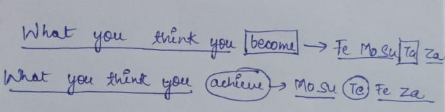 What you think you become → Fe Mo Su Ta Za
What you think you achieve → Mo Su Ta Fe Za